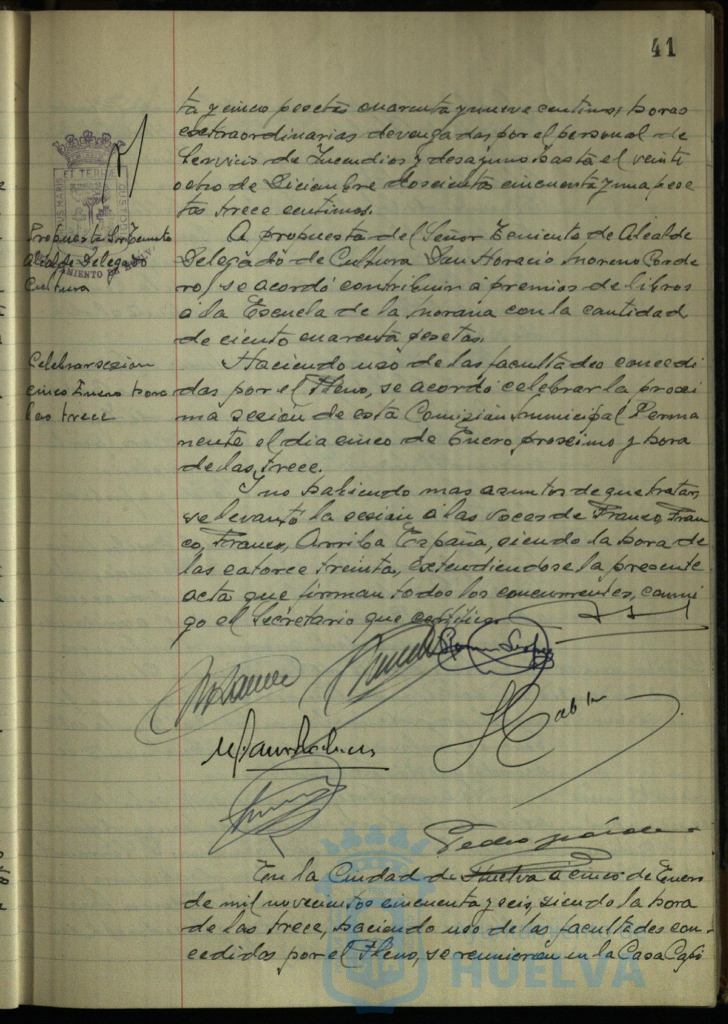 41
ta y cinco pesetas cuarenta y nueve centimos, horas
extraordinarias devengadas por el personal de
Servicio de Incendios y desayuno hasta el veinti
ocho de Diciembre doscientas cincuenta y una pese
tas trece centimos.
Propuesta Sr. Teniente
Alcalde Delegado
Cultura
A propuesta del Señor Teniente de Alcalde
Delegado de Cultura Don Horacio Moreno Corde
ro, se acordó contribuir a premios de libros
a la Escuela de la Morana con la cantidad
de ciento cuarenta pesetas.
Celebrar sesion
cinco Enero hora
las trece
Haciendo uso de las facultades concedi
das por el Pleno, se acordó celebrar la proxi
ma sesión de esta Comision Municipal Perma
nente el dia cinco de Enero proximo y hora
de las trece.
Y no habiendo mas asuntos de que tratar,
se levantó la sesión a las voces de Franco, Fran
co, Franco, Arriba España, siendo la hora de
las catorce treinta, extendiendose la presente
acta que firman todos los concurrentes, conmi
go el Secretario que certifico
Pedro
En la Ciudad de Huelva a cinco de Enero
de mil novecientos cincuenta y seis, siendo la hora
de las trece, haciendo uso de las facultades con-
cedidas por el Pleno, se reunieron en la Casa Capi
HUELVA